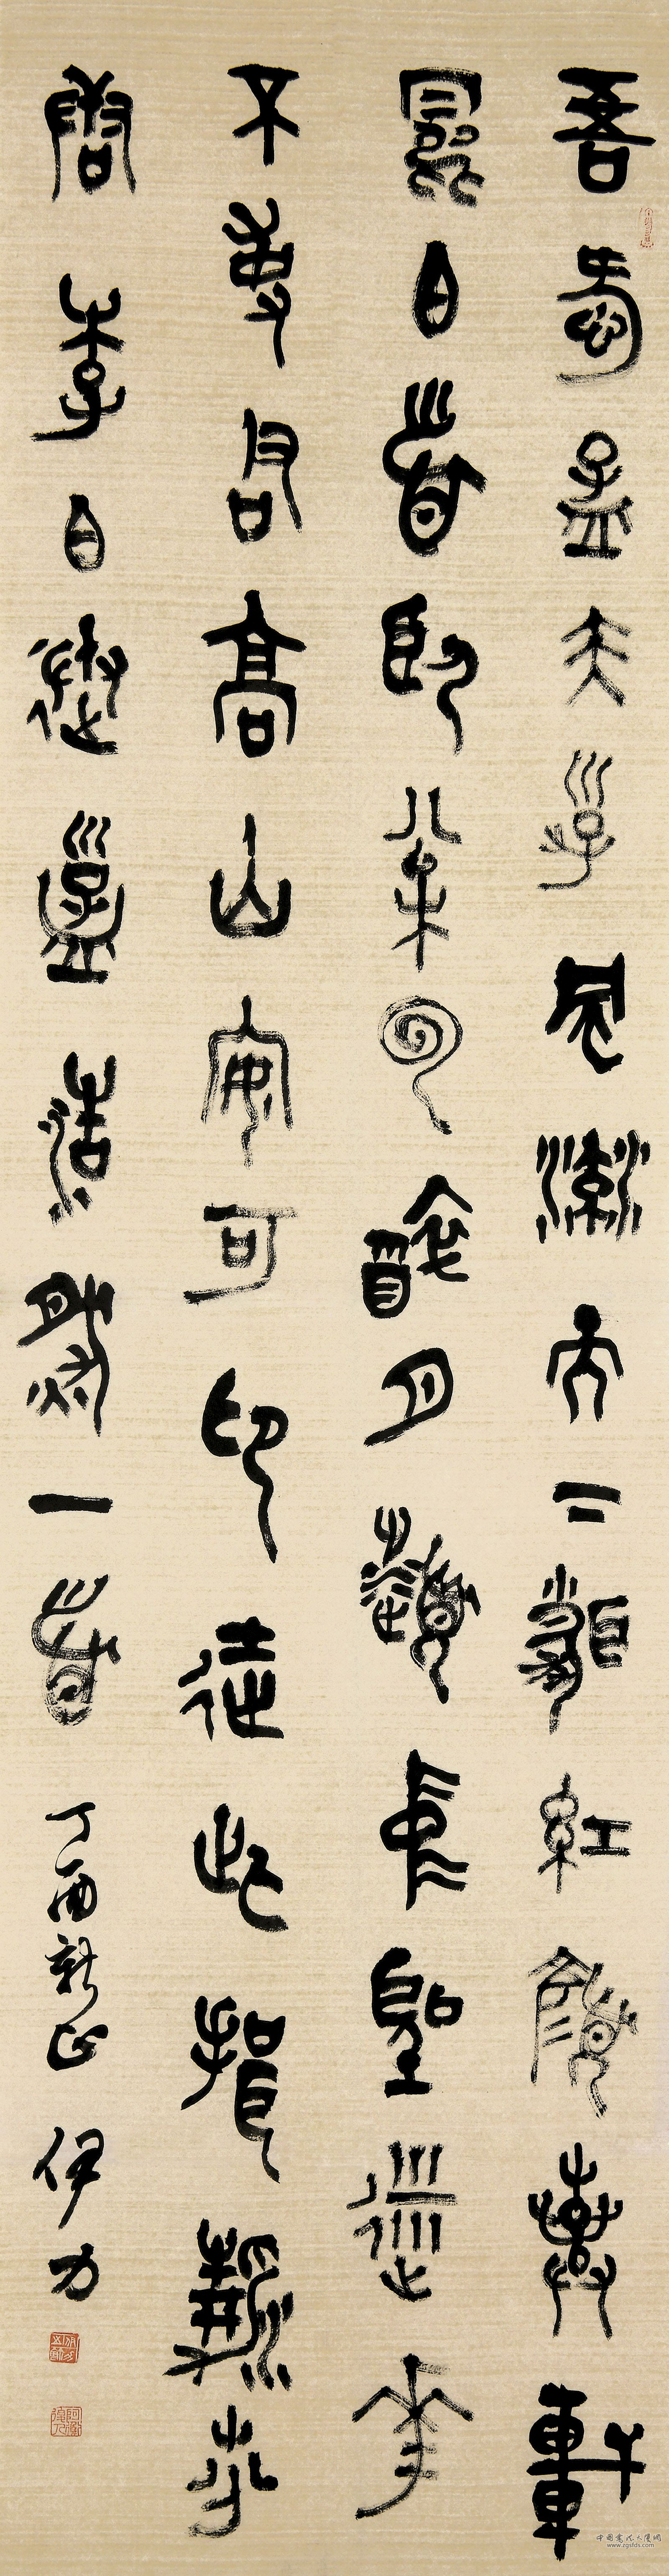 吾愛孟夫子風流天下聞紅顏棄軒
冕白首臥松雲醉月頻中聖迷花
不事君高山安可仰徒此揖清芬
唐李白孟浩然一首 丁酉新正 伊力
www.zgsfds.com